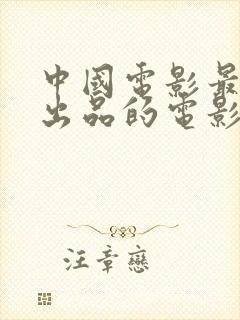 中國電影最
出品的電影
汪章戀